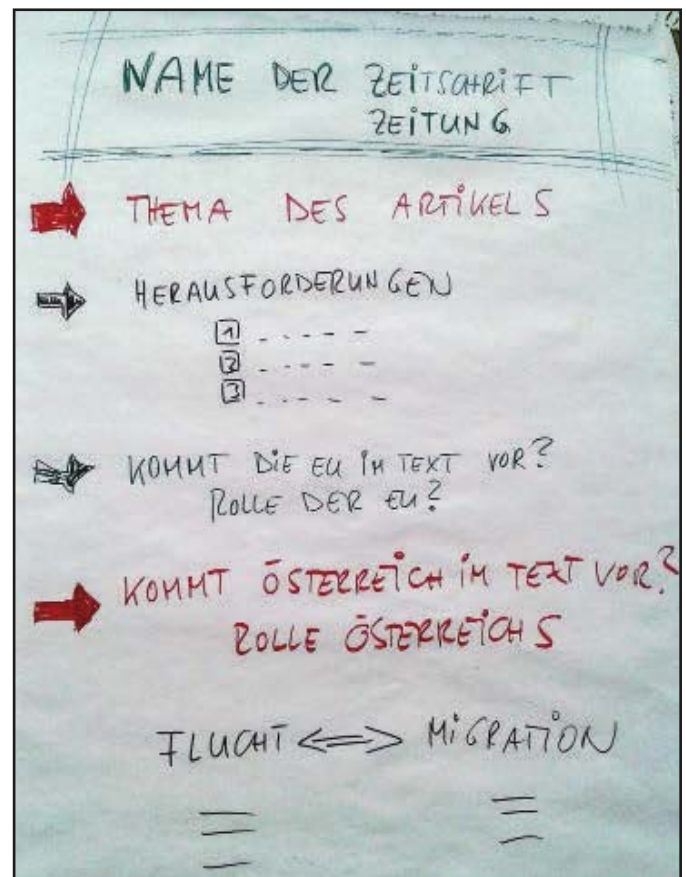 NAME DER ZEITSCHRIFT
ZEITUNG
THEMA DES ARTIKELS
HERAUSFORDERUNGEN
1 . . - - -
2 . . - - -
3 . . - - -
KOMMT DIE EU IM TEXT VOR?
ROLLE DER EU?
KOMMT ÖSTERREICH IM TEXT VOR?
ROLLE ÖSTERREICHS
FLUCHT <=> MIGRATION